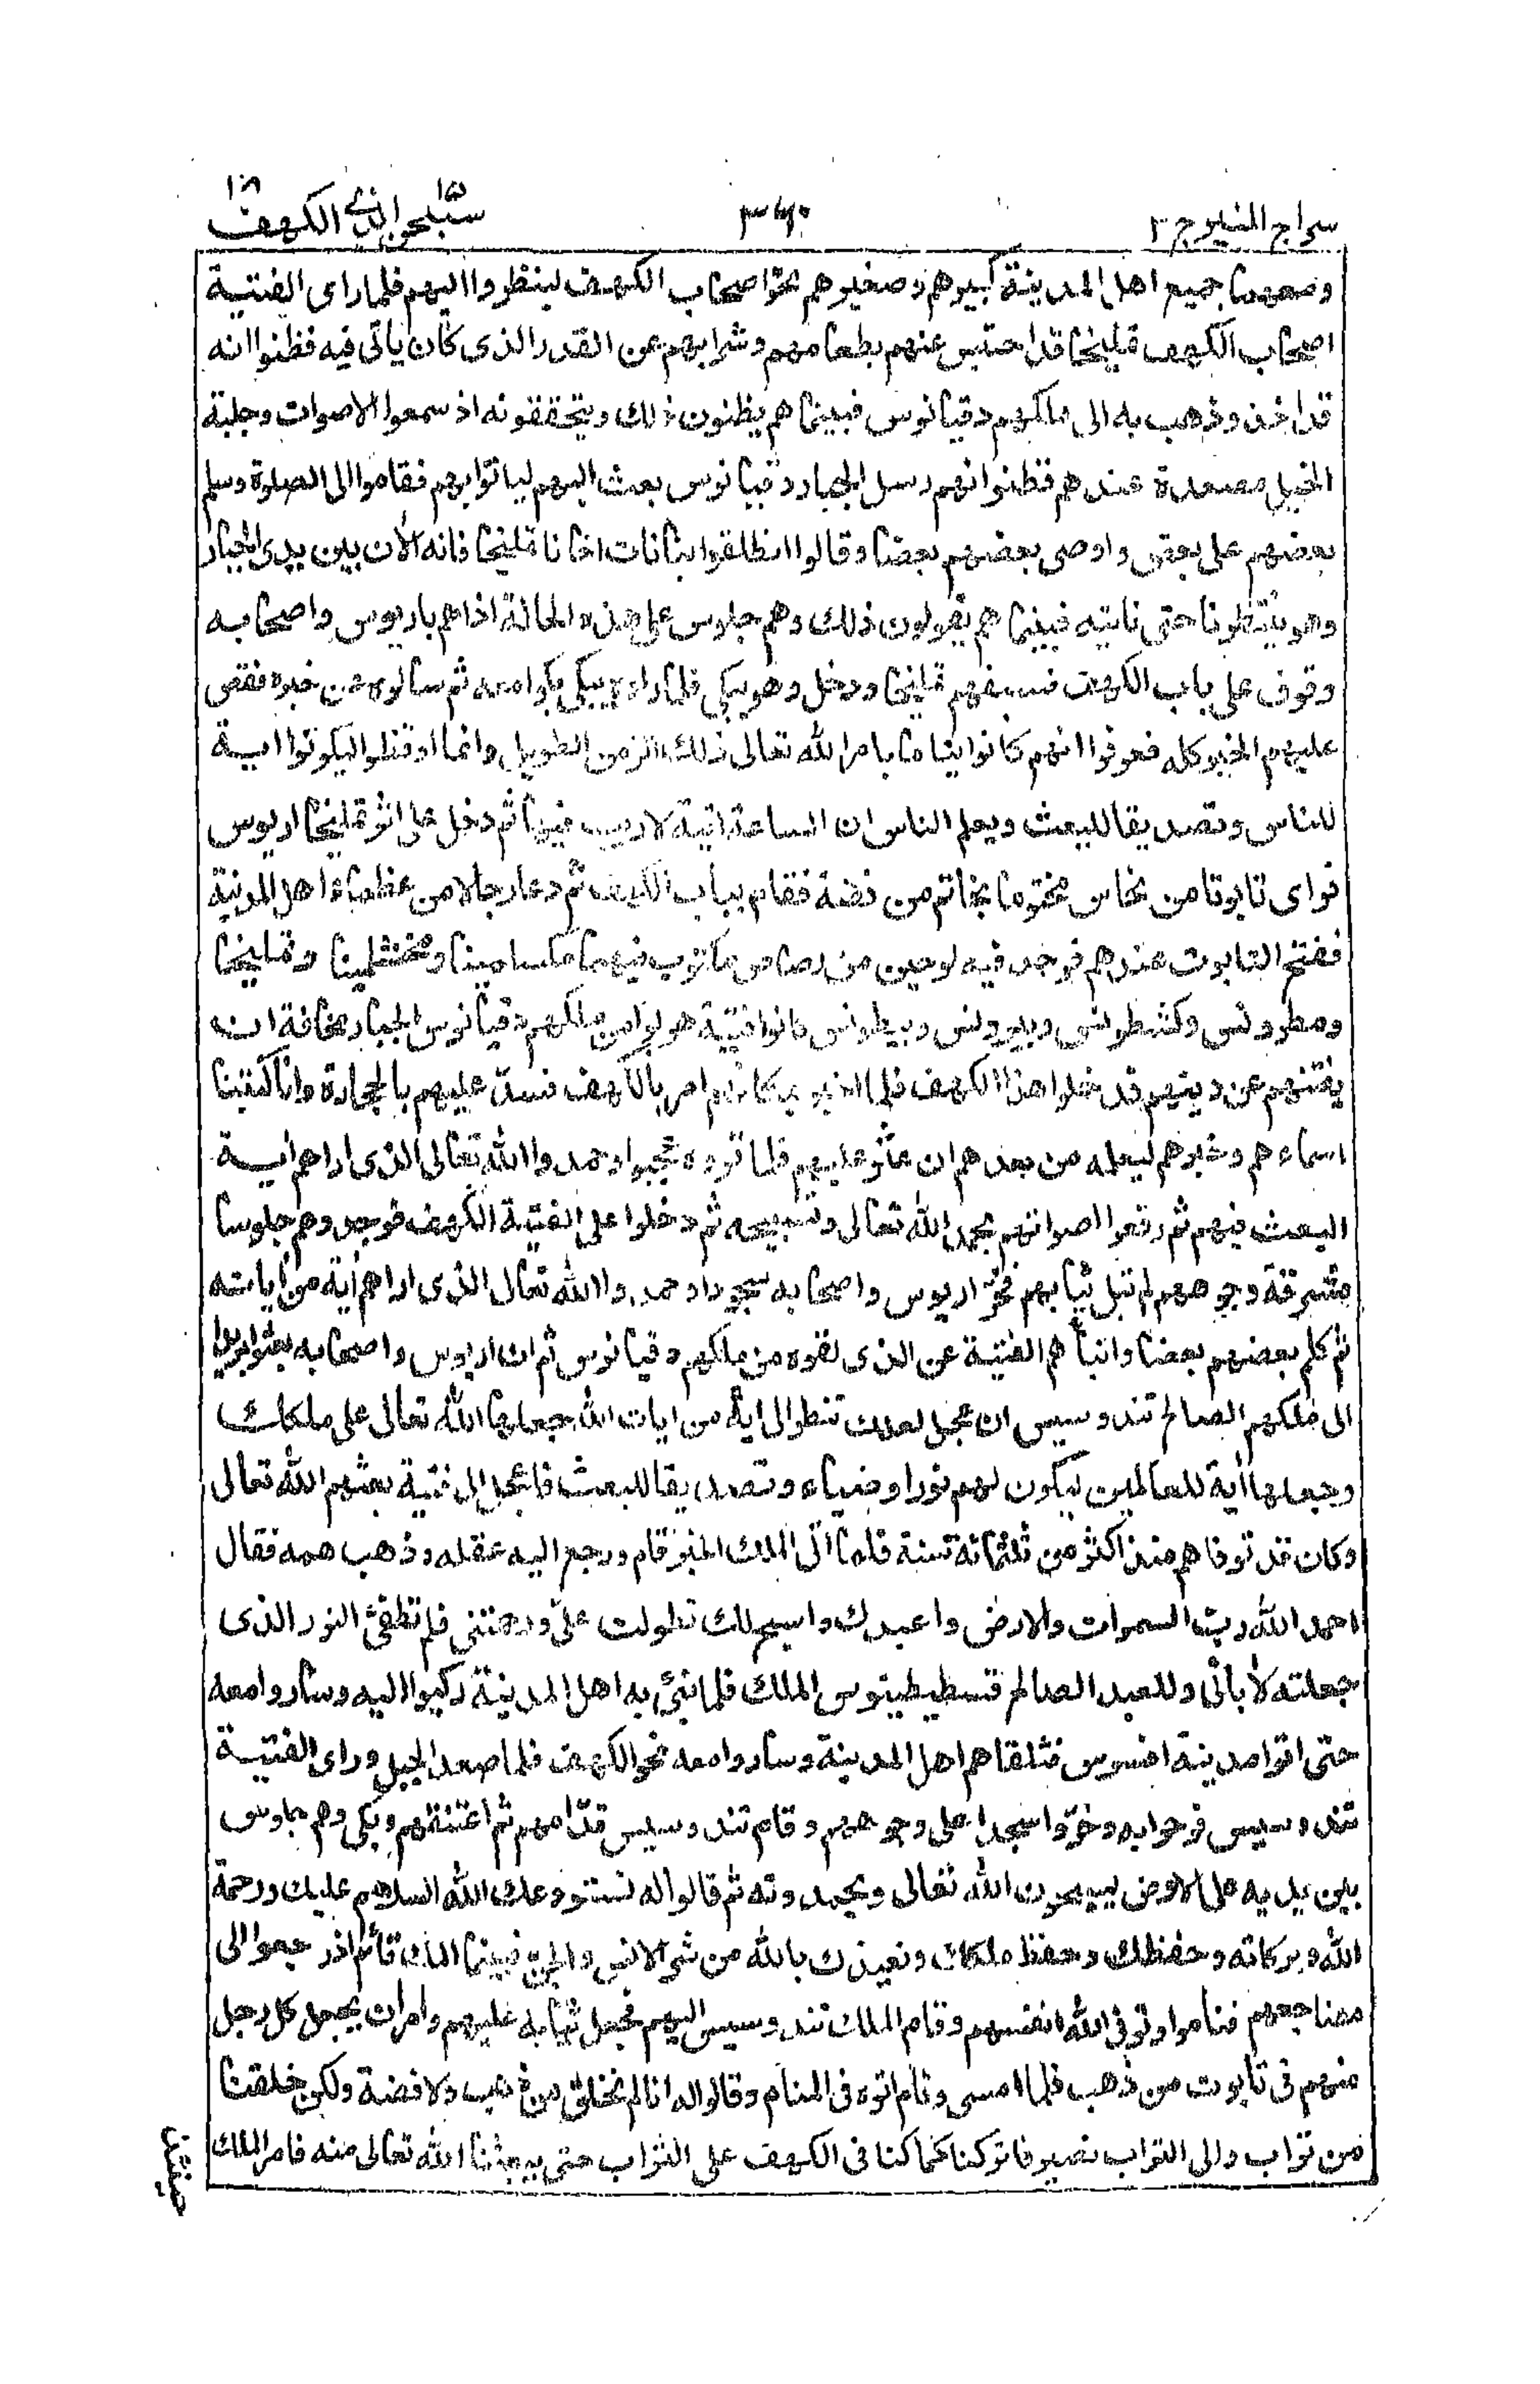 سراج المنير ج ٢
٣٤٠
سبحن الذي ١٥ الكهف ١٨
ومعهما جميع اهل المدينة كبيرهم وصغيرهم نحو اصحاب الكهف لينظروا اليهم فلما راى الفتية
اصحاب الكهف تمليخا قد احتبس عنهم بطعامهم وشرابهم عن القدر الذى كان ياتى فيه فظنوا انه
قد اخذ وذهب به الى ملكهم دقيانوس فبينما هم يظنون ذلك ويتحققونه اذ سمعوا الاصوات وجلبة
الخيل مصعدة عندهم فظنوا انهم رسل الجبار دقيانوس بعث اليهم لياتوا بهم فقاموا الى الصلوة وسلم
بعضهم على بعض واوصى بعضهم بعضا وقالوا انطلقوا بنا نات اخانا تمليخا فانه الأن بين يدى الجبار
وهو ينتظرنا حتى ناتيه فبينما هم يقولون ذلك وهم جلوس على هذه الحالة اذا هم باريوس واصحابه
وقوف على باب الكهف فسبقهم تمليخا ودخل وهو يبكى فلما راوه يبكى بكوا معه ثم سالوه عن خبره فقص
عليهم الخبر كله فعرفوا انهم كانوا نياما بامر الله تعالى ذلك الزمن الطويل وانما اوقظوا ليكونوا اية
للناس وتصديقا للبعث ويعلم الناس ان الساعة اتية لا ريب فيها ثم دخل على اثر تمليخا اريوس
فراى تابوتا من نحاس مختوما بخاتم من فضة فقام بباب الكهف ثم دعا رجلا من عظماء اهل المدينة
ففتح التابوت عندهم فوجد فيه لوحين من رصاص مكتوب فيهما مكسلمينا ومخشلمينا وتمليخا
ومطرونس وكشطونس وبيرونس وبيطونس كانوا فتية هربوا من ملكهم دقيانوس الجبار مخافة ان
يفتنهم عن دينهم فدخلوا هذا الكهف فلما اخبر بمكانهم امر بالكهف فسدّ عليهم بالحجارة وانا كتبنا
اسماءهم وخبرهم ليعلمه من بعدهم ان عثر عليهم فلما قروه عجبوا وحمدوا الله تعالى الذى اراهم أية
البعث فيهم ثم رفعوا اصواتهم بحمد الله تعالى وتسبيحه ثم دخلوا على الفتية الكهف فوجدوهم جلوسا
مشرقة وجوههم لم تبل ثيابهم فخرّ اريوس واصحابه سجودا وحمدوا الله تعالى الذى اراهم أية من أياته
ثم كلم بعضهم بعضا وانبأهم الفتية عن الذى لقوه من ملكهم دقيانوس ثم ان اريوس واصحابه بعثوا بريدا
الى ملكهم الصالح تندوسيس ان عجل لعلك تنظر الى أية من ايات الله جعلها الله تعالى على ملكك
وجعلها أية للعالمين ليكون لهم نورا وضياء وتصديقا للبعث فاعجل الى فتية بعثهم الله تعالى
وكان قد توفاهم منذ اكثر من ثلثمائة سنة فلما اتى الملك الخبر قام ورجع اليه عقله وذهب همه فقال
احمد الله ربّ السموات والارض واعبدك واسبح لك تطولت علىّ ورحمتنى فلم تطفئ النور الذى
جعلته لأبائى وللعبد الصالح قسطيطينوس الملك فلما نبئ به اهل المدينة ركبوا اليه وساروا معه
حتى اتوا مدينة افسوس فتلقاهم اهل المدينة وساروا معه نحو الكهف فلما صعد الجبل وراى الفتية
تندوسيس فرحوا به وخرّوا سجدا على وجوههم وقام تندوسيس قدّامهم ثم اعتنقهم وبكى وهم جلوس
بين يديه على الارض يسبحون الله تعالى ويحمدونه ثم قالوا له نستودعك الله السلام عليك ورحمة
الله وبركاته وحفظك وحفظ ملكك ونعيذك بالله من شر الانس والجنّ فبينما الملك قائم اذ رجعوا الى
مضاجعهم فناموا وتوفى الله انفسهم وقام الملك تندوسيس اليهم فجعل ثيابه عليهم وامر ان يجعل كل رجل
منهم فى تابوت من ذهب فلما امسى ونام اتوه فى المنام وقالوا له انا لم نخلق من ذهب ولا فضة ولكن خلقنا
من تراب والى التراب نصير فاتركنا كما كنا فى الكهف على التراب حتى يبعثنا الله تعالى منه فامر الملك
حينئذ